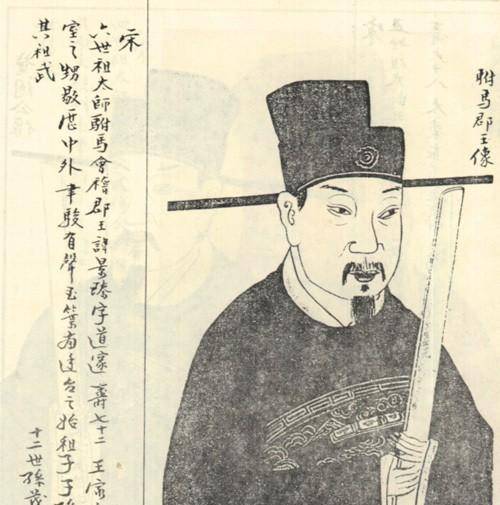 駙馬郡王像
宋
六世祖太師駙馬會稽郡王諱景臻字道邃壽七十二 王家
室之甥敭歷中外聿駿有聲玉葉有台之始祖子子
其祖武
十二世孫茂